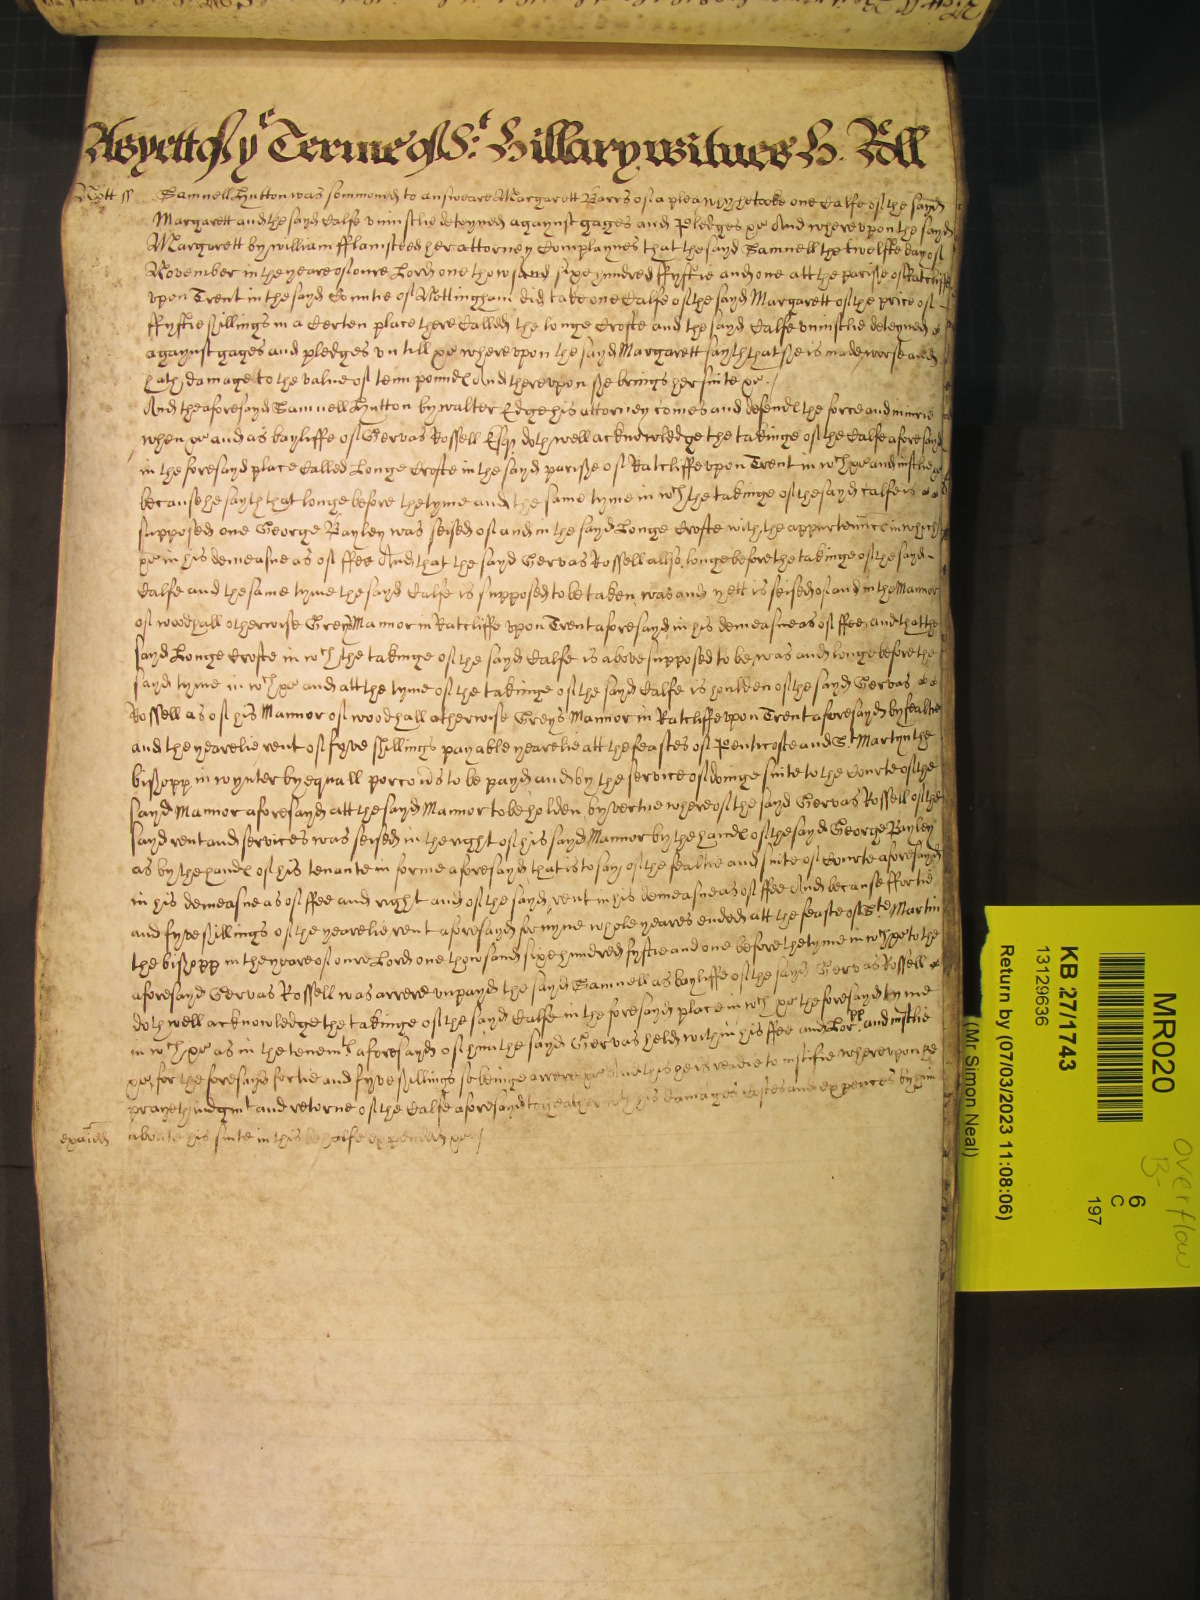 As yett of ye Terme of St Hillary witnes H. Roll
Nott ss Samuell Hutton was sommoned to answeare Margarett Parrs of a plea why he tooke one Calfe of the sayd
Margarett and the sayd Calfe uniustlie deteyned agaynst gages and pledges &c And whereupon the sayd
Margarett by william fflamsteed her attorney Complaynes that the sayd Samuell the twelfte day of
November in the yeare of oure Lord one thowsand sixe hundred ffyftie and one att the parishe of Ratcliffe
upon Trent in the sayd Countie of Nottingham did take one Calfe of the sayd Margarett of the price of
ffyftie shillings in a Certen place there Called the longe Crofte and the sayd Calfe uniustlie deteyned
agaynst gages and pledges untill &c whereupon the sayd Margarett sayth that she is made worse and
hath damage to the value of tenn pounds And thereupon she brings her suite &c
And the aforesayd Samuell Hutton by walter Edge his attorney comes and defends the force and iniurie
when &c and as bayliffe of Gervas Rossell Esqr doth well acknowledge the takinge of the Calfe aforesayd
in the foresayd place Called Longe Crofte in the sayd parishe of Ratcliffe upon Trent in wch &c and iustlie &c
because he sayth that longe before the tyme and the same tyme in wch the takinge of the sayd calfe is
supposed one George Bayley was seised of and in the sayd Longe Crofte with the appurtenncs in which
&c in his demeasne as of ffee And that the sayd Gervas Rossell allso longe before the takinge of the sayd
Calfe and the same tyme the sayd Calfe is supposed to be taken was and yett is seised of and in the Mannor
of woodhall otherwise Greys Mannor in Ratcliffe upon Trent aforesayd in his demeasne as of ffee and that the
sayd Longe Crofte in wch the takinge of the sayd Calfe is above supposed to be, was and longe before the
sayd tyme in wch &c and att the tyme of the takinge of the sayd Calfe is houlden of the sayd Gervas
Rossell as of his Mannor of woodhall otherwise Greys Mannor in Ratcliffe upon Trent aforesayd by fealtie
and the yearelie rent of fyve shillings payable yearelie att the feastes of Penticoste and St Martyn the
bishopp in wynter by equall porcons to be payd and by the service of doinge suite to the Courte of the
sayd Mannor aforesayd att the sayd Mannor to be holden by vertue whereof the sayd Gervas Rossell of the
sayd rent and services was seised in the right of his sayd Mannor by the hands of the sayd George Bayley
as by the hands of his tenante in forme aforesayd that is to say of the fealtie and suite of Courte aforesayd
in his demeasne as of ffee and right and of the sayd rent in his demeasne as of ffee And because ffortie
and fyve shillings of the yearelie rent aforesayd for nyne whole yeares ended att the feaste of Ste Martin
the bishopp in the yeare of oure Lord one thowsand sixe hundred fyftie and one before the tyme in wch &c to the
aforesayd Gervas Rossell was arrere unpayd the sayd Samuell as bayliffe of the sayd Gervas Rossell
doth well acknowledge the takinge of the sayd Calfe in the foresayd place in wch &c the foresayd tyme
in wch &c as in the tenemts aforesayd of him the sayd Gervas held within his ffee and Lorpp, and iustlie
&c, for the foresayd fortie and fyve shillings soe beinge arrere &c And this he is readie to iustifie whereupon he
prayeth iudgmt and retorne of the Calfe aforesayd togeather wth his damages Costes and expences by him
exaied aboute his suite in this behalfe expended &c
MR020
KB 27/1743
13129636
Return by (07/03/2023 11:08:06)
(Mr Simon Neal)
6
C
197
overflow
B-